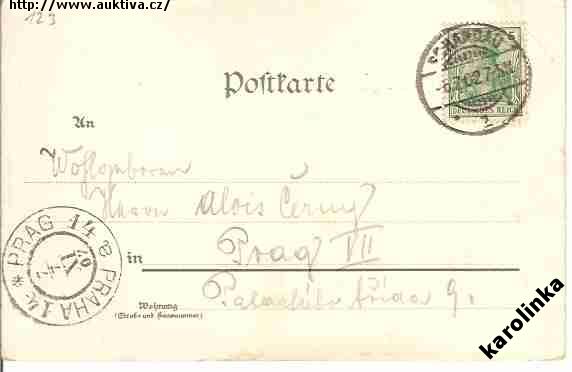 http://www.auktiva.cz/
123
Postkarte
SCHANDAU
DEUTSCHES REICH
An
Wohlgeboren
Herrn Alois Černý
* PRAG 14 a PRAHA 14
in Prag VII
Wohnung
(Straße und Hausnummer)
třída 9.
karolinka